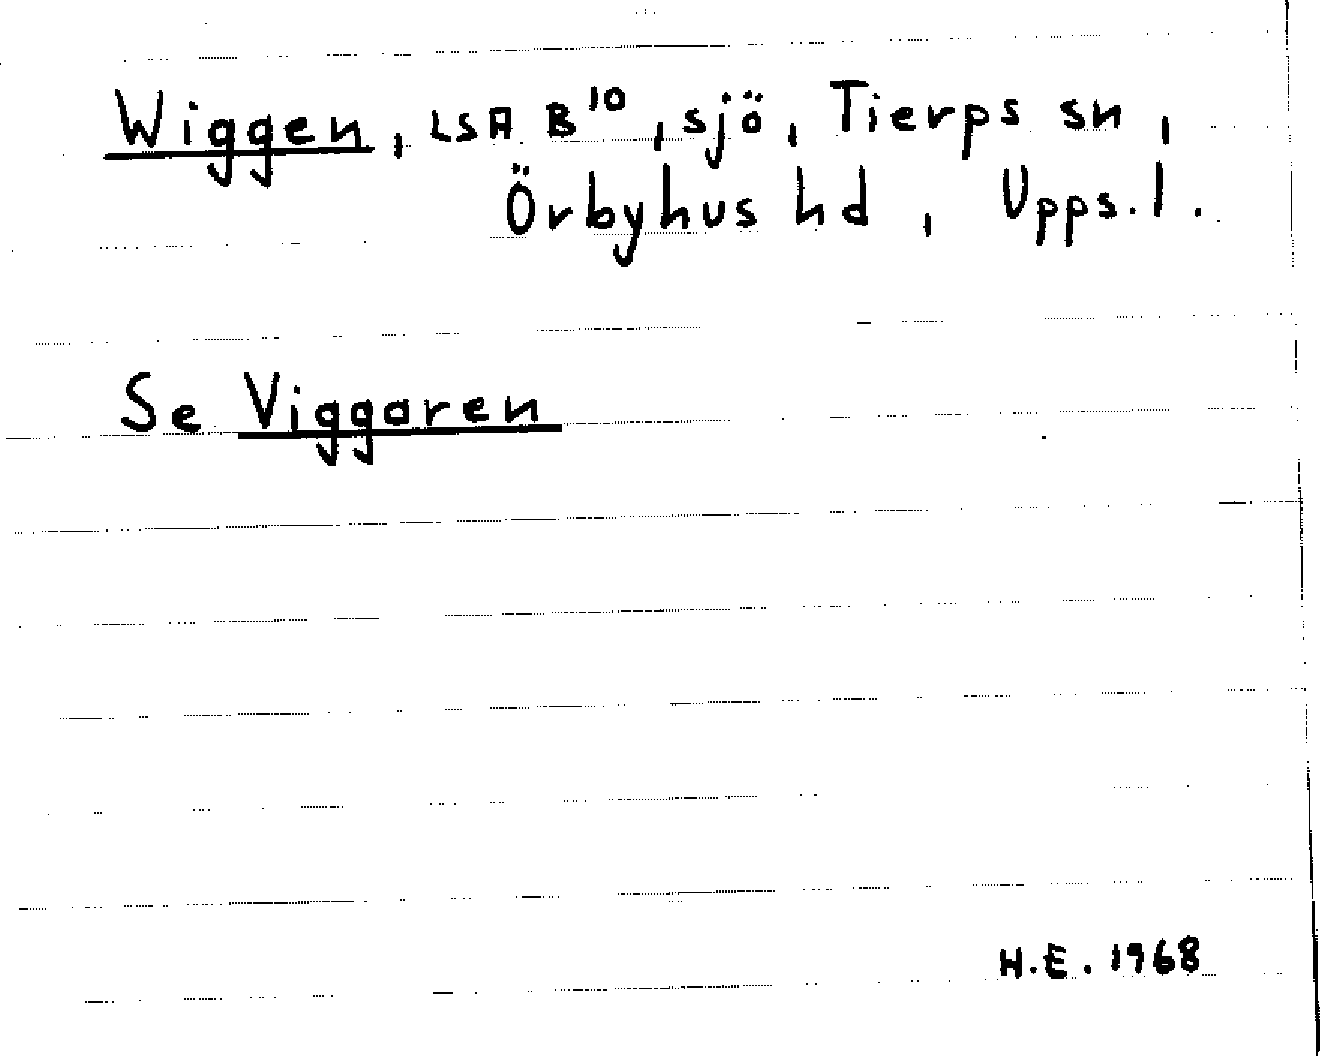 Wiggen, LSA B¹⁰, sjö, Tierps sn,
Örbyhus hd, Upps. l.
Se Viggaren
H.E. 1968